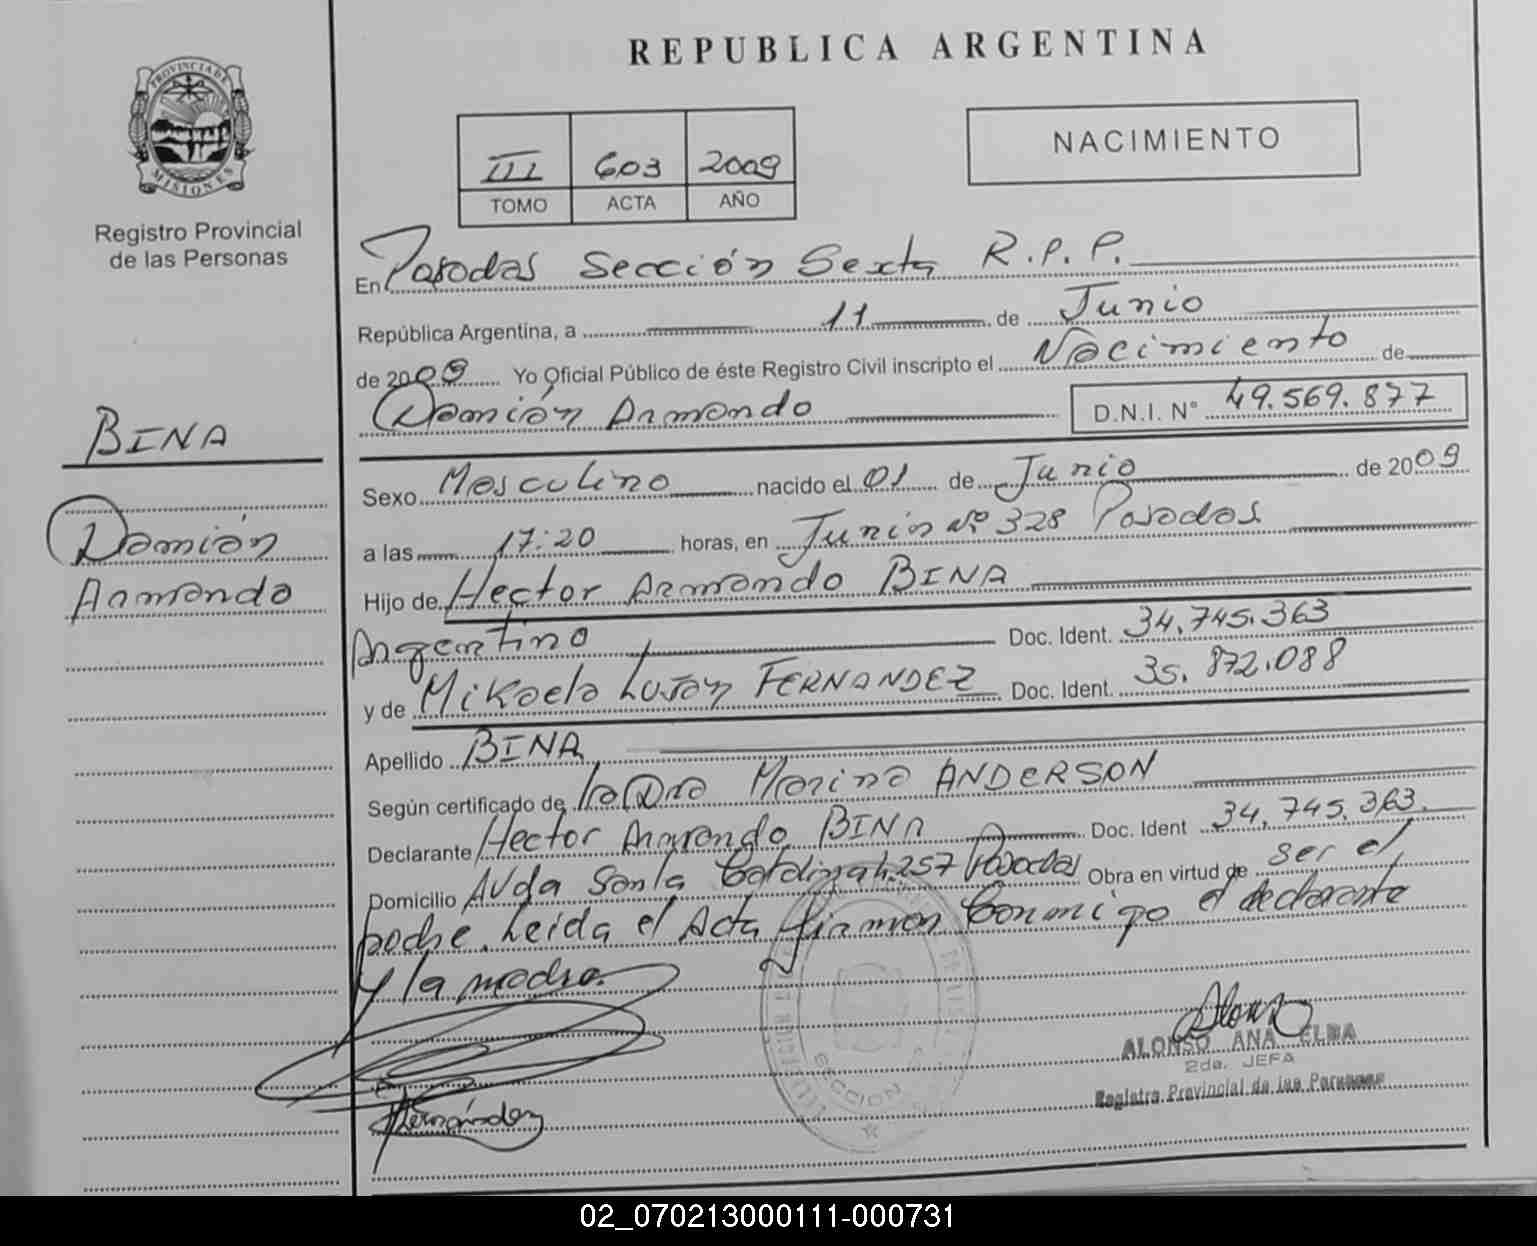 REPUBLICA ARGENTINA
PROVINCIA DE
MISIONES
Registro Provincial
de las Personas
III 603 2009
TOMO ACTA AÑO
NACIMIENTO
En Posadas Sección Sexta R.P.P.
República Argentina, a 11 de Junio
de 2009 Yo Oficial Público de éste Registro Civil inscripto el Nacimiento de
Damián Armando D.N.I. N° 49.569.877
BINA
Damián
Armando
Sexo Masculino nacido el 01 de Junio de 2009
a las 17:20 horas, en Junín Nº 328 Posadas
Hijo de Hector Armando BINA
Argentino Doc. Ident. 34.745.363
y de Mikaela Luján FERNANDEZ Doc. Ident. 35.872.088
Apellido BINA
Según certificado de la Dra Marina ANDERSON
Declarante Hector Armando BINA Doc. Ident 34.745.363.
Domicilio Avda Santa Catalina 4257 Posadas Obra en virtud de ser el
padre. Leida el Acta firman Conmigo el declarante
y la madre.
Fernández
SECCION
ALONSO ANA ELBA
2da. JEFA
Registro Provincial de las Personas
02_070213000111-000731